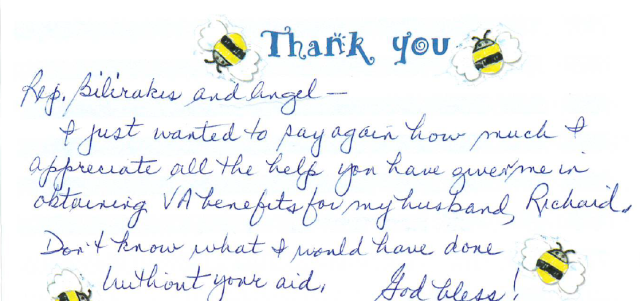 Thank you
Rep. Bilirakis and Angel —
I just wanted to say again how much I
appreciate all the help you have given me in
obtaining VA benefits for my husband, Richard.
Don't know what I would have done
without your aid. God bless!